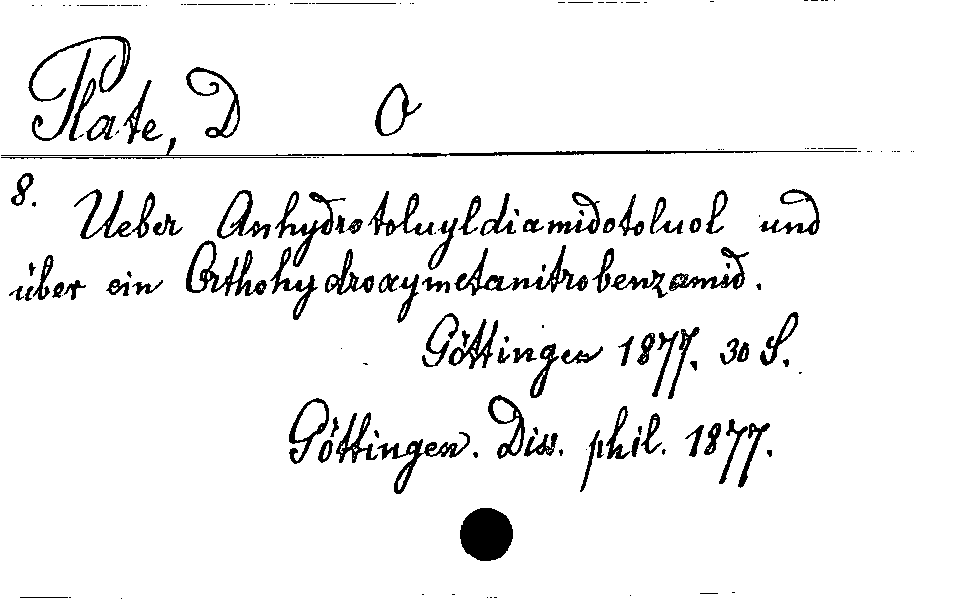 Plate, D O
8.
Ueber Anhydrotoluyldiamidotoluol und
über ein Orthohydroxymetanitrobenzamid.
Göttingen 1877. 30 S.
Göttingen. Diss. phil. 1877.